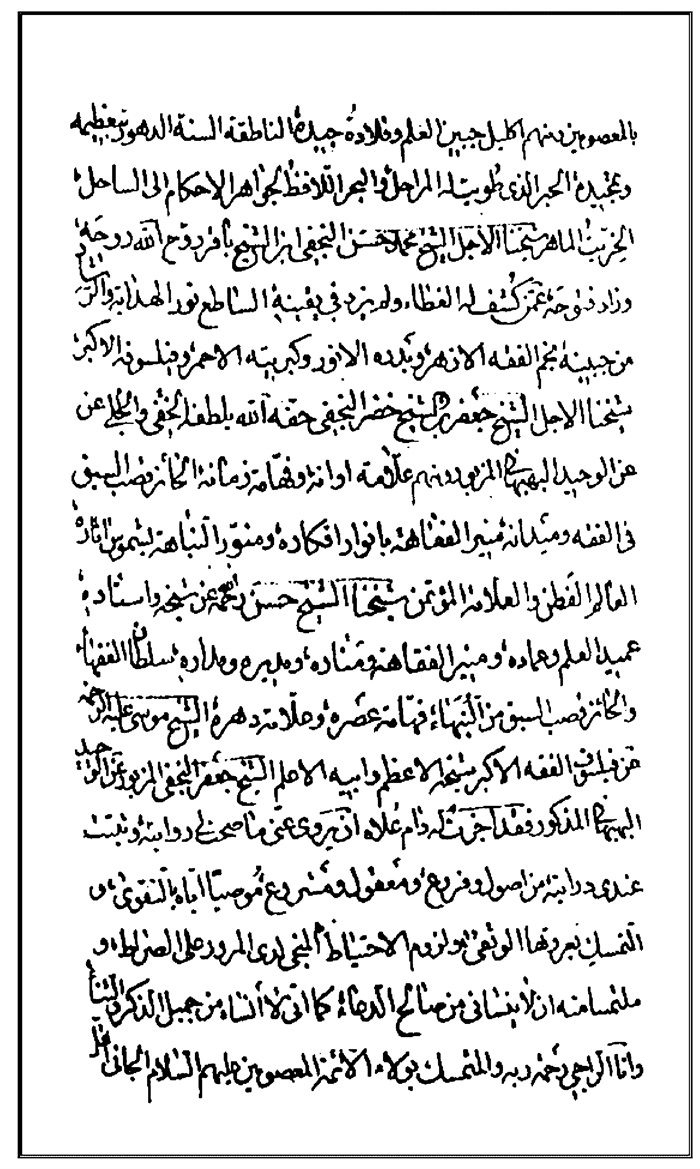 بالمعصومين ومنهم اكليل جبين العلم وقلادة جيده الناطقة السنة الدهور بتعظيمه
وتمجيده الحبر الذى طويت له المراحل والبحر اللافظ لجواهر الاحكام الى الساحل
الخريت الماهر شيخنا الأجل الشيخ محمد حسن النجفى ابن الشيخ باقر روح الله روحه
وزاد فتوحه عمن كشف له الغطاء ولم يزد فى يقينه الساطع نور الهداية
من جبينه نجم الفقه الازهر وبدره الانور وكبريته الاحمر وفيلسوفه الاكبر
شيخنا الاجل الشيخ جعفر بن الشيخ خضر النجفى حفه الله بلطفه الخفى والجلى عن
عن الوحيد البهبهانى المزبور ومنهم علامة اوانه وفهامة زمانه الحائز قصب السبق
فى الفقه وميدانه منير الفقاهة بانوار افكاره ومنور النباهة بشموس اثاره
العالم الفطن والعلامة المؤتمن شيخنا الشيخ حسن رحمه عن شيخه واستاده
عميد العلم وعماده ومنير الفقاهة ومناره ومديره ومداره سلطان الفقهاء
والحائز قصب السبق من النبهاء فهامة عصره وعلامة دهره الشيخ موسى عليه الرحمه
عن فيلسوف الفقه الاكبر شيخه الاعظم وابيه الاعلم الشيخ جعفر النجفى المزبور عن الوحيد
البهبهانى المذكور فقد اجزت له دام علاه ان يروى عنى ما صحت لى روايته وثبتت
عندى درايته من اصول وفروع ومعقول ومشروع موصيا اياه بالتقوى و
التمسك بعروتها الوثقى ولزوم الاحتياط المنجى لدى المرور على الصراط و
ملتمسا منه ان لا ينسانى من صالح الدعاء كما انى لا أنساه من جميل الذكر والثناء
وانا الراجى رحمة ربه والمتمسك بولاء الائمة المعصومين عليهم السلام الجانى